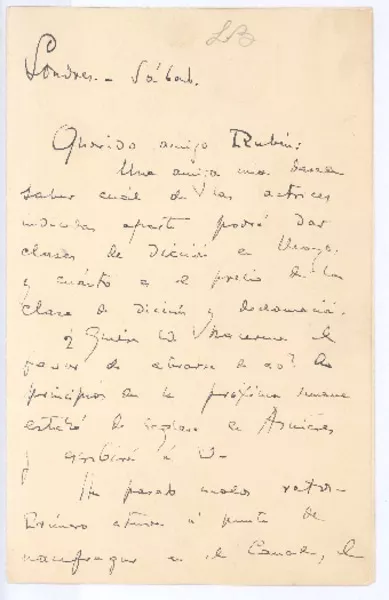 LB
Londres. - Sábado.
Querido amigo Rubén:
Una amiga mía desea
saber cuál de las actrices
indicadas aparte podrá dar
clases de dicción en
y cuánto es el precio de la
clase de dicción y declamación.
¿Quiere Ud. hacerme el
favor de de eso? A
principios de la próxima semana
estaré de regreso en Asnières
y escribiré á Ud.
He pasado malos ratos.
Primero estuve á punto de
naufragar en el Canal, el